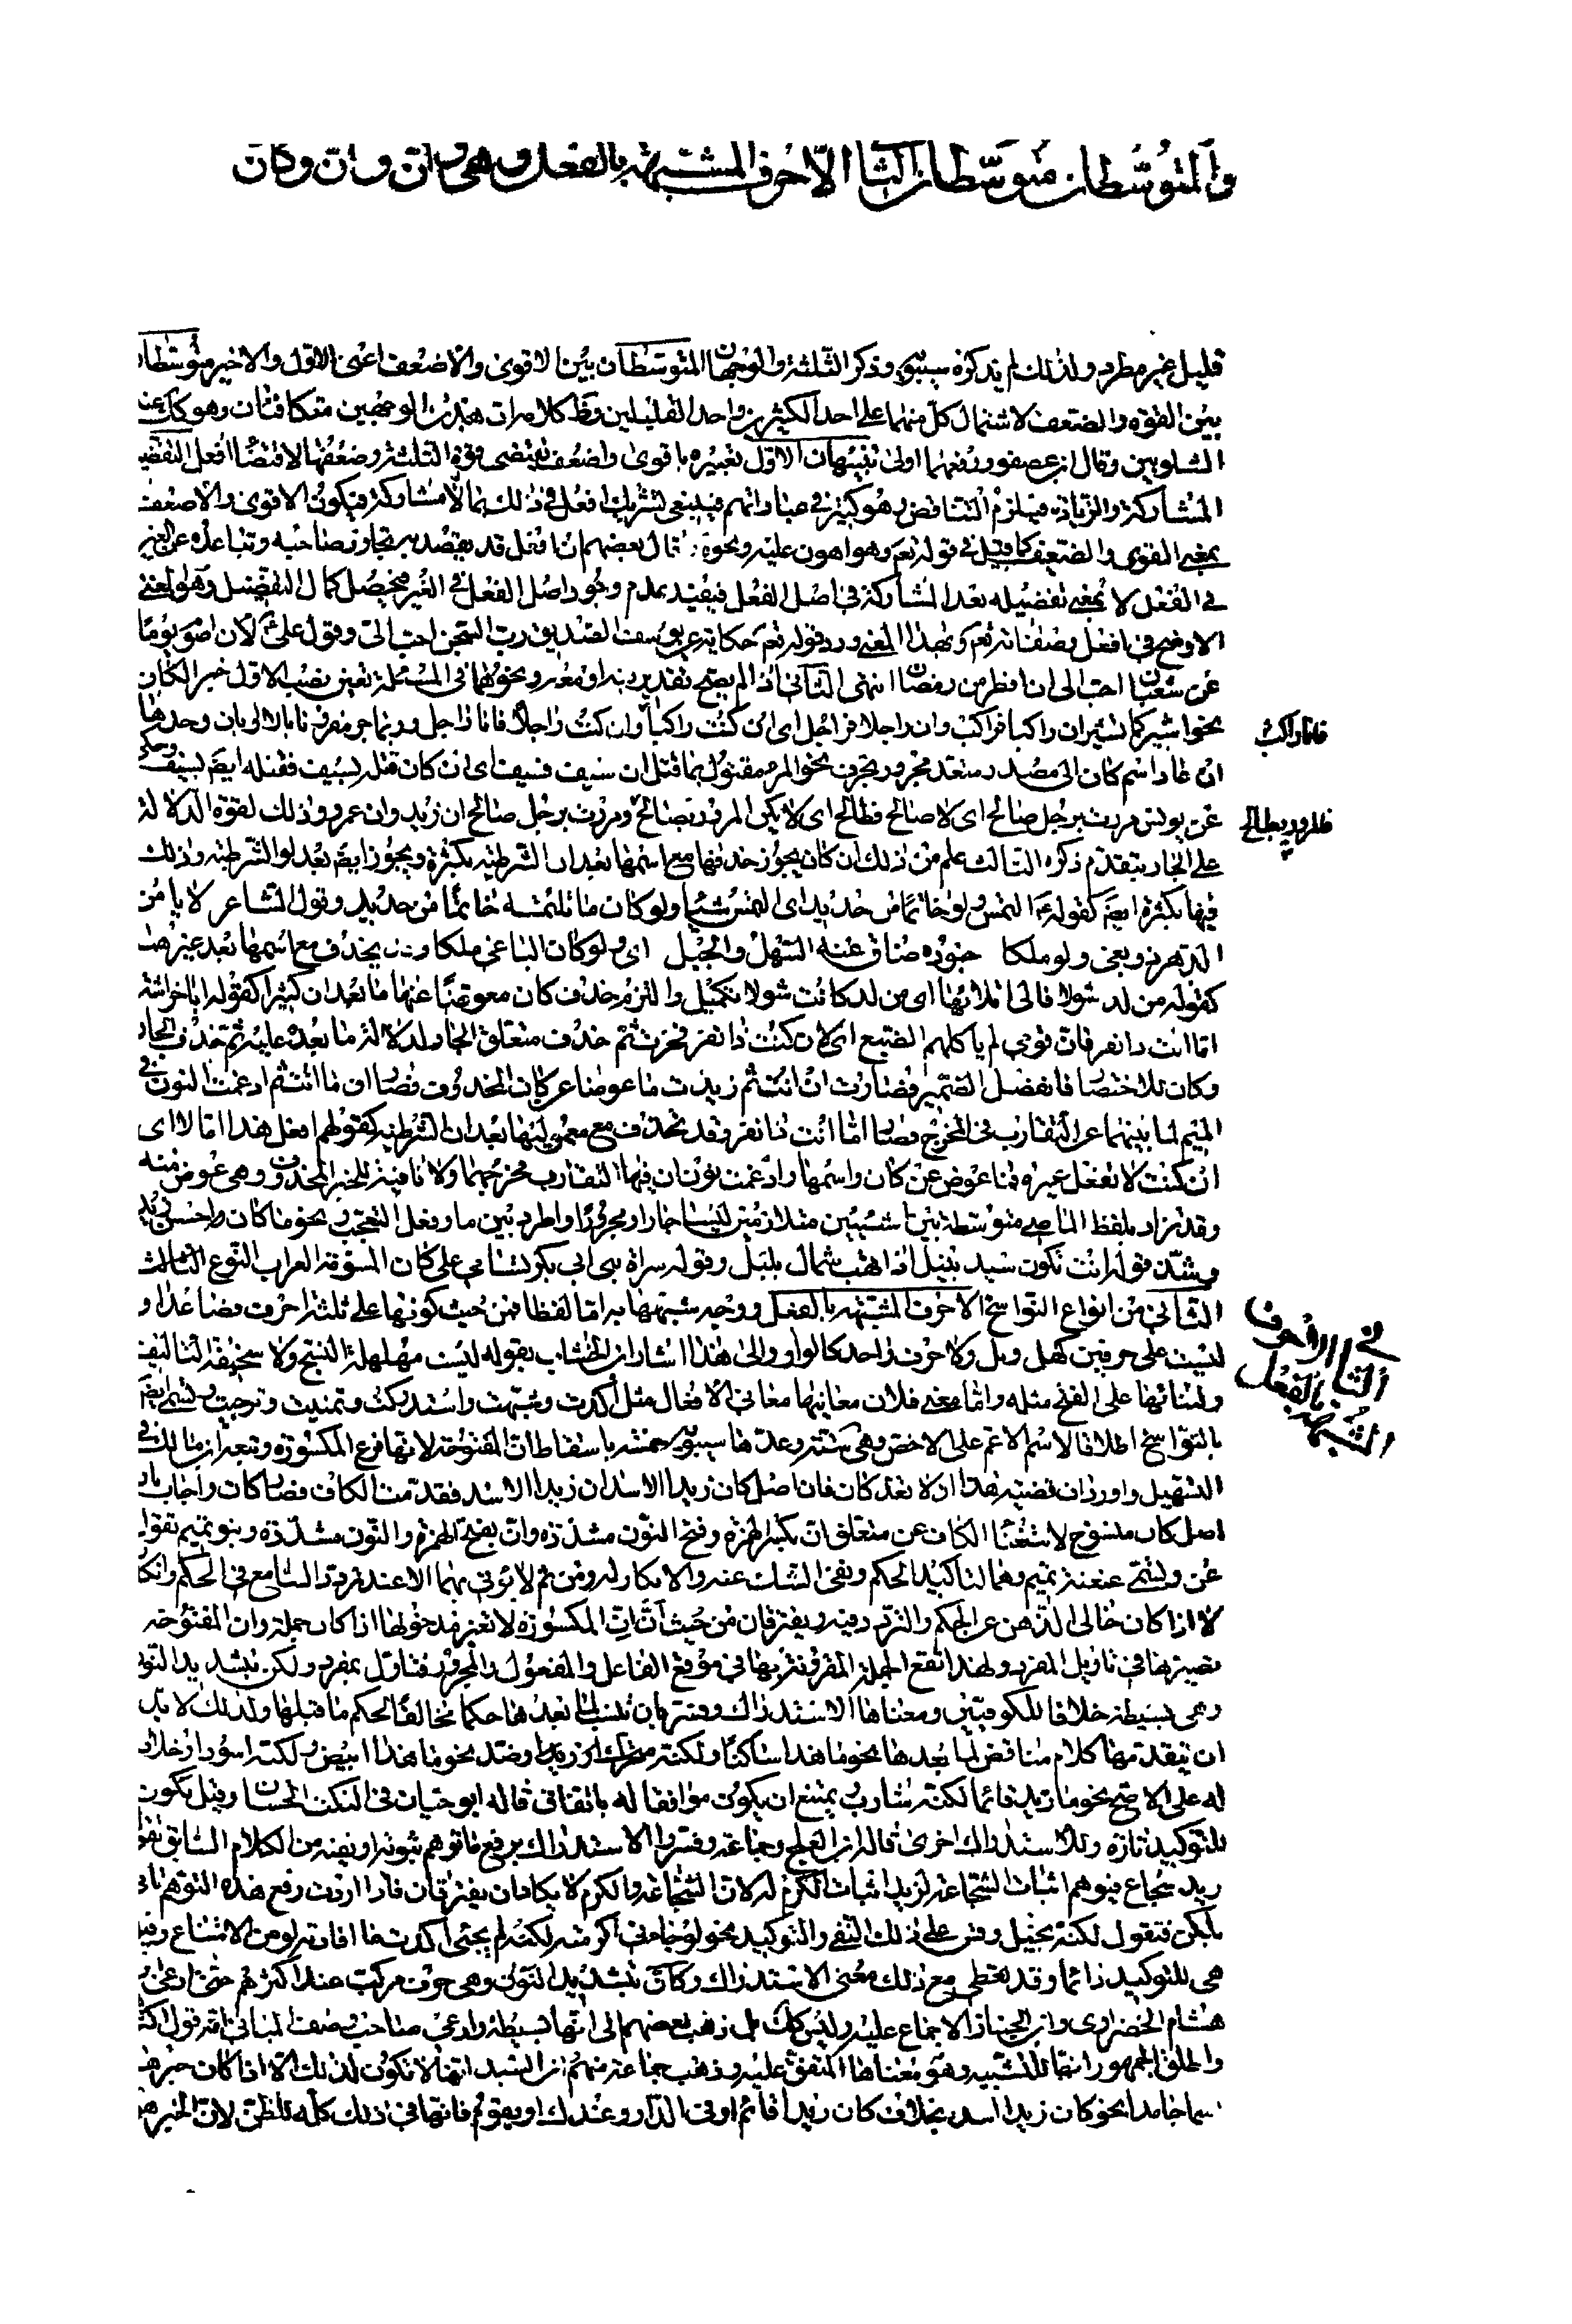 والمتوسطان متوسطان الثاني الاحرف المشبهة بالفعل وهي انّ وانّ وكانّ
قليل غير مطرد ولذلك لم يذكره سيبويه وذكر الثلثة والوجهان المتوسطان بين الاقوى والاضعف اعنى الاول والاخير متوسطان
بين القوة والضعف لاشتمال كل منهما على احد الكثيرين واحد القليلين وظ كلامه ان هذين الوجهين متكافئان وهو كك عند
الشلوبين وقال ابن عصفور رفعهما اولى تنبيهان الاول تعبيره باقوى واضعف يقتضى قوة الثلثة وضعفها لاقتضاء افعل التفضيل
المشاركة والزيادة فيلزم التناقض وهو كثير في عباراتهم فينبغى تشريك افعل في ذلك بما لا مشاركة فيكون الاقوى والاضعف
بمعنى القوى والضعيف كما قيل في قوله تعم وهو اهون عليه ونحوه قال بعضهم ان افعل قد يقصد به تجاوز صاحبه وتباعده عن الغير
في الفعل لا بمعنى تفضيله بعد المشاركة في اصل الفعل فيفيد عدم وجود اصل الفعل في الغير فيحصل كمال التفضيل وهو المعنى
الاوضح في افعل وصفاته تعم وبهذا المعنى ورد قوله تعم حكاية عن يوسف الصديق رب السجن احب الى وقول على ع لان اصوم يوما
عن شعبان احب الى ان افطر من رمضان انتهى الثاني اذا لم يصح تقدير فيه او معه ونحوهما في المسئلة تعين نصب الاول خبر الكان
نحو اسير كما تسير ان راكبا فراكب وان راجلا فراجل اى ان كنت راكبا وان كنت راجلا فانا راجل وربما جر مقرونا بالا او بان وحدها
فانا راكب
ان عاد اسم كان الى مصدر متعد مجرور بحرف نحو المرء مقتول بما قتل ان سيف فسيف اى ان كان قتله بسيف فقتله ايضا بسيف وحكى
عن يونس مررت برجل صالح اى لا صالح فطالح اى لا يكن المرور بصالح ومررت برجل صالح ان زيد وان عمرو وذلك لقوة الدلالة
فالمرور بطالح
على الجار بتقدم ذكره الثالث علم من ذلك ان كان يجوز حذفها مع اسمها بعد ان الشرطية بكثرة ويجوز ايضا بعد لو الشرطية وذلك
فيها بكثرة ايضا كقوله ع التمس ولو خاتما من حديد اى التمس شيئا ولو كان ما تلتمسه خاتما من حديد وقول الشاعر لا يامن
الدهر ذو بغى ولو ملكا جنوده ضاق عنها السهل والجبل اى ولو كان الباغى ملكا وقد يحذف مع اسمها بعد غيرهما
كقوله من لد شولا فالى اتلائها اى من لد كانت شولا تكميل والتزم حذف كان معوضا عنها ما بعد ان كثيرا كقوله ابا خراشة
اما انت ذا نفر فان قومي لم ياكلهم الضبع اى لان كنت ذا نفر فخرت ثم حذف متعلق الجار لدلالة ما بعده عليه ثم حذف الجار
وكان للاختصار فانفصل الضمير فصارت ان انت ثم زيدت ما عوضا عن كان المحذوف فصار ان ما انت ثم ادغمت النون في
الميم لما بينهما عن التقارب في المخرج فصار اما انت ذا نفر وقد تحذف مع معموليها بعد ان الشرطية كقولهم افعل هذا اما لا اى
ان كنت لا تفعل غيره فما عوض عن كان واسمها وادغمت نون ان فيها لتقارب مخرجهما ولا نافية للخبر المحذوف وهى عوض منه
وقد تزاد بلفظ الماضى متوسطة بين شيئين متلازمين ليسا جارا ومجرورا واطرد بين ما وفعل التعجب نحو ما كان احسن زيدا
وشذ قوله انت تكون سيد نبيل اذا تهب شمال بليل وقوله سراة بنى ابى بكر تسامى على كان المسومة العراب النوع الثالث
الثاني من انواع النواسخ الاحرف المشبهة بالفعل ووجه شبهها به اما لفظا فمن حيث كونها على ثلثة احرف فصاعدا و
في
الثاني الاحرف
المشبهة بالفعل
ليست على حرفين كهل وبل ولا حرف واحد كالواو والى هذا اشار ابن الخشاب بقوله ليست مهلهلة النسج ولا سخيفة التاليف
ولبنائها على الفتح مثله واما معنى فلان معانيها معانى الافعال مثل اكدت وشبهت واستدركت وتمنيت وترجيت وتسمى ايضا
بالنواسخ اطلاقا لاسم الاعم على الاخص وهى ستة وعدها سيبويه خمسة باسقاط ان المفتوحة لانها فرع المكسورة وتبعه ابن مالك في
التسهيل واورد ان قضية هذا ان لا تعد كان فان اصل كان زيدا الاسد ان زيدا كالاسد فقدمت الكاف فصار كان واجاب بان
اصل كان منسوخ لاستغناء الكاف عن متعلق ان بكسر الهمزة وفتح النون مشددة وان بفتح الهمزة والنون مشددة وبنو تميم تقول
عن وتسمى عنعنة تميم وهما لتاكيد الحكم ونفى الشك عنه والانكار له ومن ثم لا يؤتى بهما الا عند تردد السامع في الحكم وانكاره
لا اذا كان خالى الذهن عن الحكم والتردد فيه ويفترقان من حيث ان ان المكسورة لا تغير مدخولها اذا كان جملة وان المفتوحة
تصيرها في تاويل المفرد ولهذا تقع الجملة المقرونة بها في موقع الفاعل والمفعول والمجرور فتاول بمفرد ولكن بتشديد النون
وهى بسيطة خلافا للكوفيين ومعناها الاستدراك وفسر بان تنسب لما بعدها حكما مخالفا لحكم ما قبلها ولذلك لا بد
ان يتقدمها كلام مناقض لما بعدها نحو ما هذا ساكنا ولكنه متحرك او ضد نحو ما هذا ابيض لكنه اسود او خلاف
له على الاصح نحو ما زيد قائما لكنه شارب يمتنع ان يكون موافقا له باتفاق قاله ابو حيان في النكت الحسان وقيل تكون
للتوكيد تارة وللاستدراك اخرى قاله ابن العلج وجماعة وفسروا الاستدراك برفع ما توهم ثبوته او نفيه من الكلام السابق نحو
زيد شجاع فيوهم اثبات الشجاعة لزيد اثبات الكرم له لان الشجاعة والكرم لا يكادان يفترقان فاذا اردت رفع هذه التوهم تاتى
بلكن فتقول لكنه بخيل وقس على ذلك النفى والتوكيد نحو لو جاءنى اكرمته لكنه لم يجئ اكدت ما افادته لو من الامتناع وقيل
هى للتوكيد دائما وقد تعطى مع ذلك معنى الاستدراك وكان بتشديد النون وهى حرف مركب عند اكثرهم حتى ادعى
هشام الخضراوى وابن الخباز الاجماع عليه وليس كك بل ذهب بعضهم الى انها بسيطة وادعى صاحب رصف المبانى انه قول الاكثر
واطلق الجمهور انها للتشبيه وهو معناها المتفق عليه وذهب جماعة منهم ابن السيد انها لا تكون لذلك الا اذا كان خبرها
اسما جامدا نحو كان زيدا اسد بخلاف كان زيدا قائم او في الدار او عندك او يقوم فانها في ذلك كله للظن لان الخبر هو